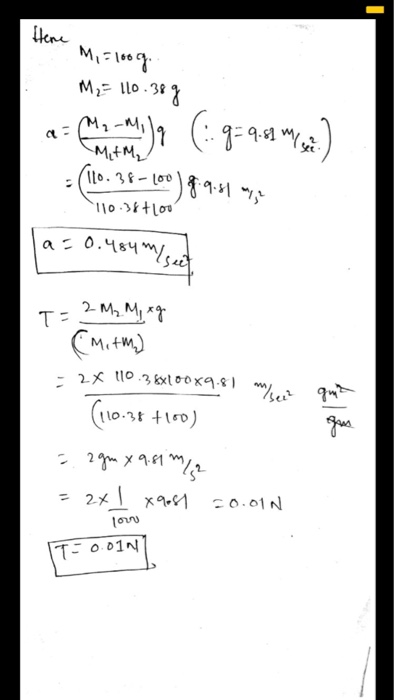 Here
M₁ = 100g.
M₂ = 110.38 g
a = (M₂ - M₁ / M₁+M₂) g (∴ g = 9.81 m/sec².)
= (110.38 - 100 / 110.38+100) 9.81 m/s²
a = 0.484 m/sec²
T = 2 M₂ M₁ × g / (M₁+M₂)
= 2 × 110.38×100×9.81 / (110.38 + 100) m/sec² gm² / gms
= 2gm × 9.81 m/s²
= 2× 1/1000 × 9.81 = 0.01N
T = 0.01N